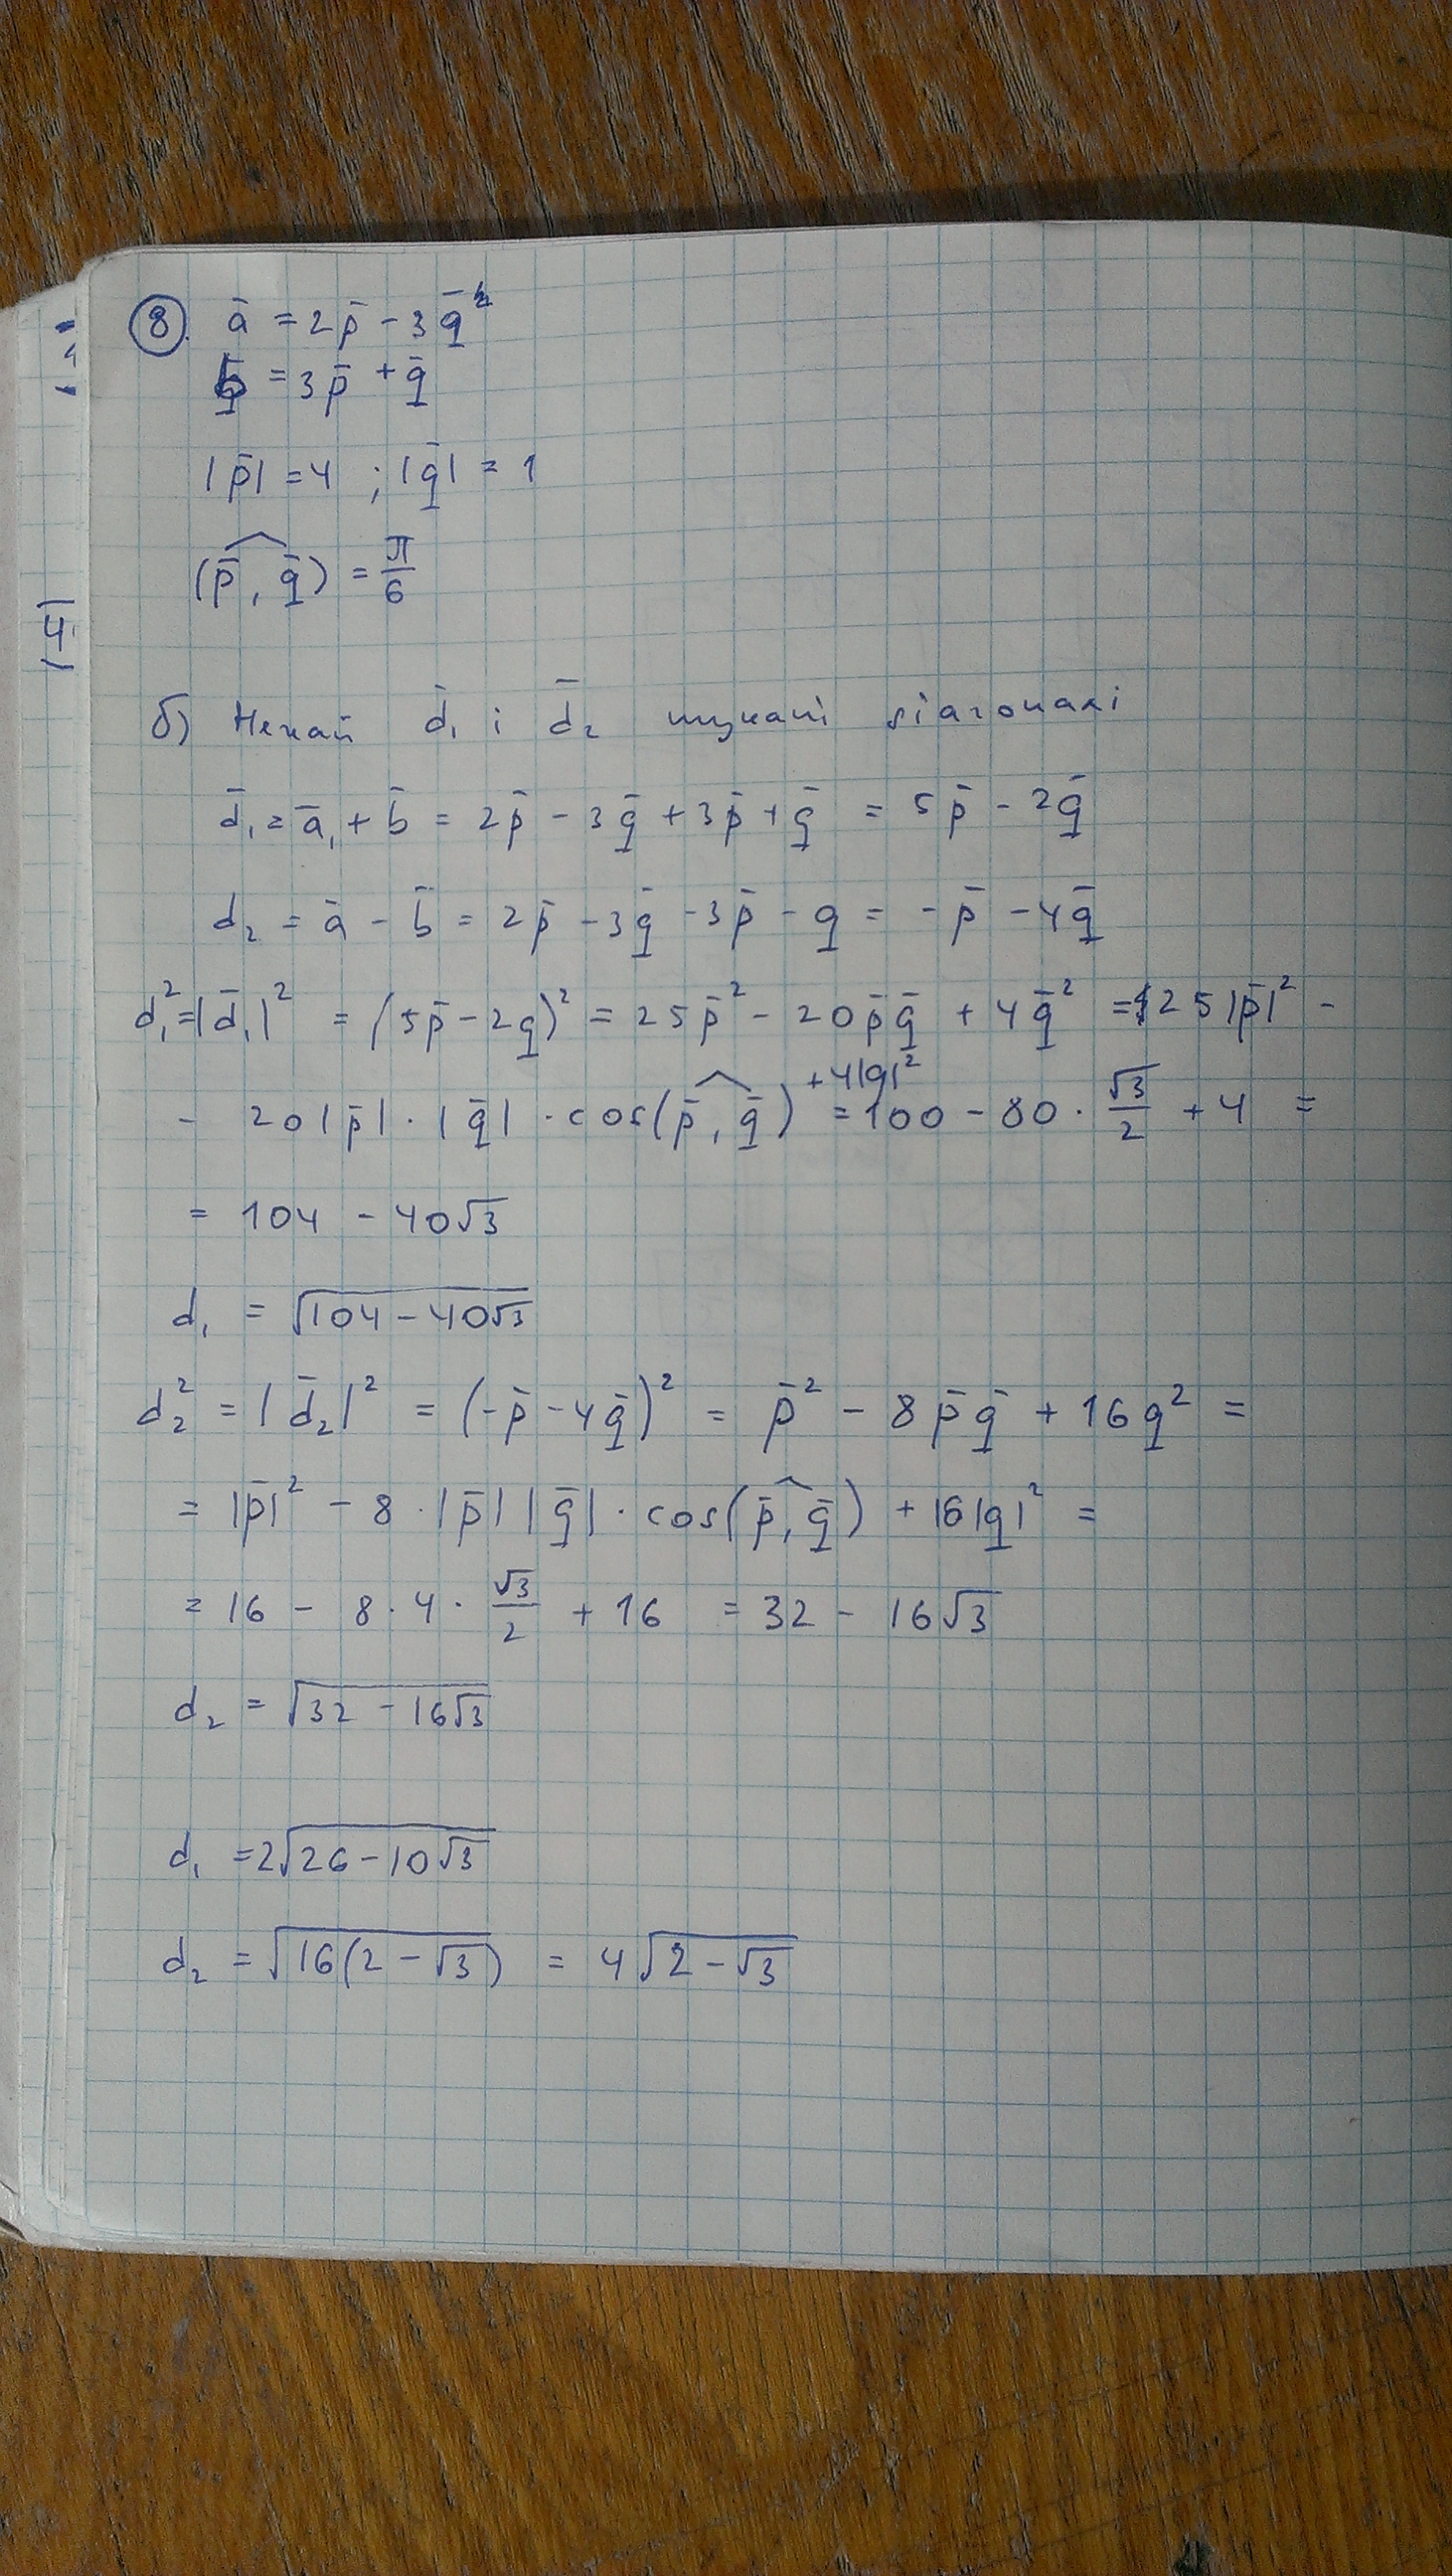 8. a̅ = 2p̅ - 3q̅
b̅ = 3p̅ + q̅
|p̅| = 4 ; |q̅| = 1
(p̅, q̅) = π/6
б) Нехай d̅₁ і d̅₂ шукані діагоналі
d̅₁ = a̅₁ + b̅ = 2p̅ - 3q̅ + 3p̅ + q̅ = 5p̅ - 2q̅
d₂ = a̅ - b̅ = 2p̅ - 3q̅ - 3p̅ - q = -p̅ - 4q̅
d₁² = |d̅₁|² = (5p̅ - 2q)² = 25p̅² - 20p̅q̅ + 4q̅² = 25|p̅|² -
- 20|p̅| · |q̅| · cos(p̅, q̅) + 4|q|² = 100 - 80 · √3/2 + 4 =
= 104 - 40√3
d₁ = √(104 - 40√3)
d₂² = |d̅₂|² = (-p̅ - 4q̅)² = p̅² - 8p̅q̅ + 16q² =
= |p̅|² - 8 · |p̅| |q̅| · cos(p̅, q̅) + 16|q|² =
= 16 - 8 · 4 · √3/2 + 16 = 32 - 16√3
d₂ = √(32 - 16√3)
d₁ = 2√(26 - 10√3)
d₂ = √(16(2 - √3)) = 4√(2 - √3)